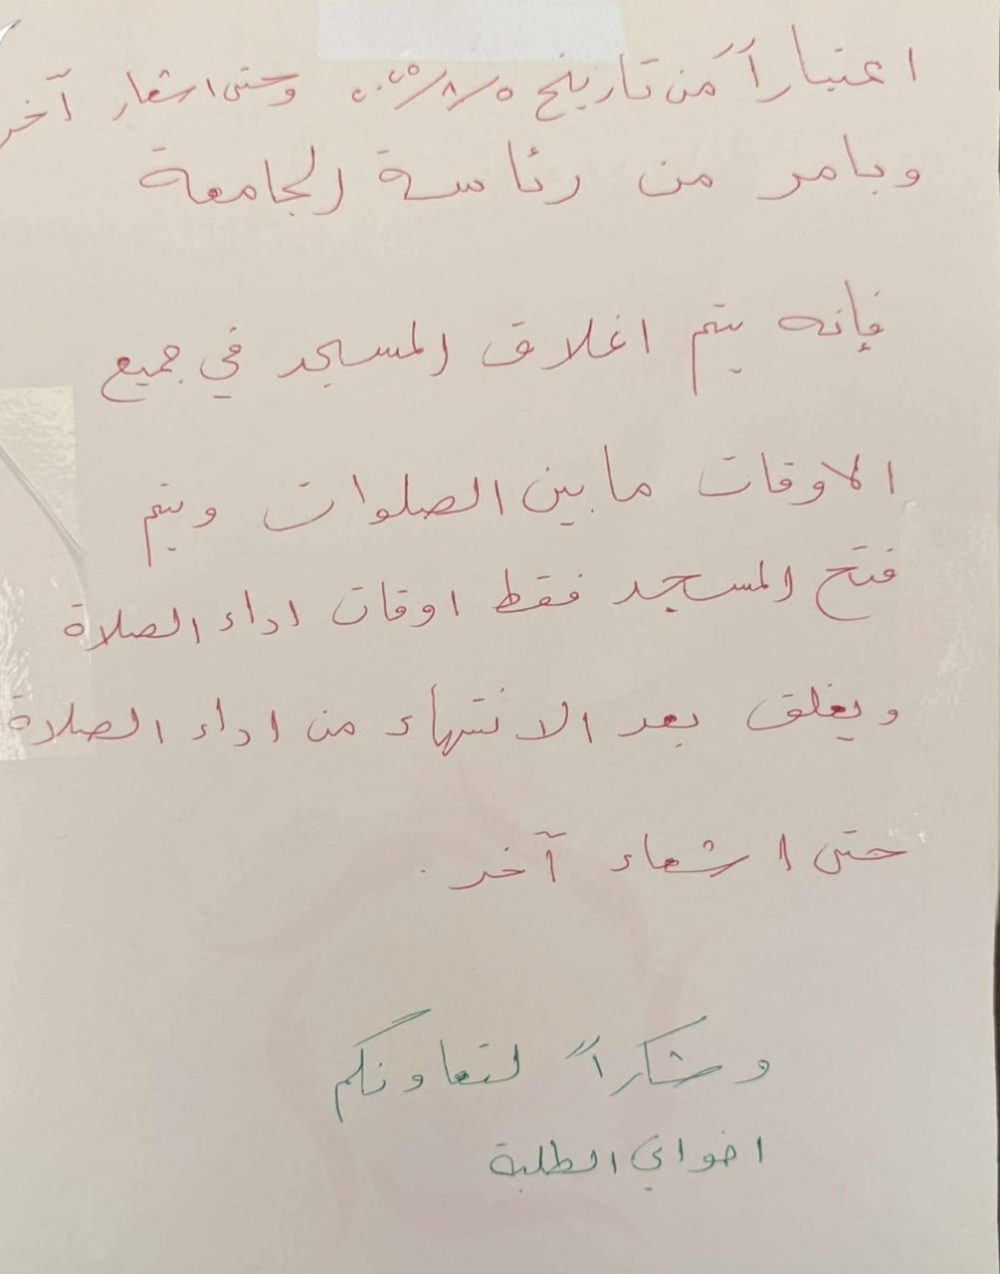 اعتباراً من تاريخ ٥/٨/٢٠٢٥ وحتى اشعار آخر
وبامر من رئاسة الجامعة
فإنه يتم اغلاق المسجد في جميع
الاوقات ما بين الصلوات ويتم
فتح المسجد فقط اوقات اداء الصلاة
ويغلق بعد الانتهاء من اداء الصلاة
حتى اشعاء آخر.
وشكراً لتعاونكم
اخواني الطلبة